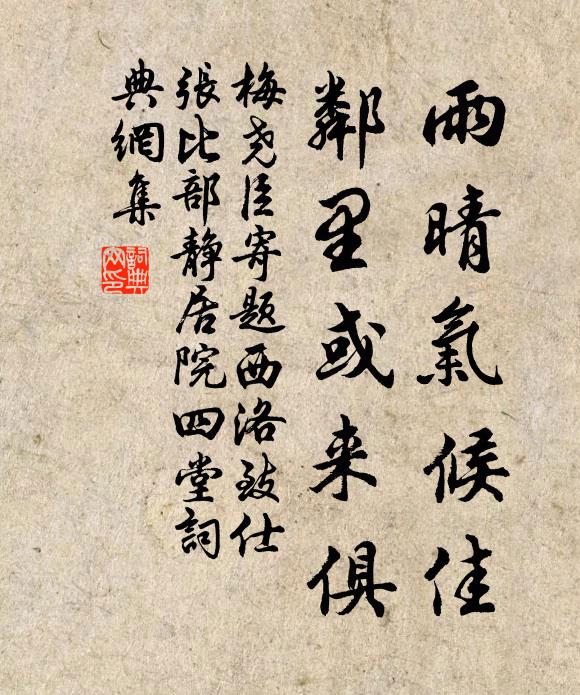 雨晴氣候佳
鄰里或来俱
梅尧臣寄題西洛致仕
張比部靜居院四堂詞
典網集
詞典
网印